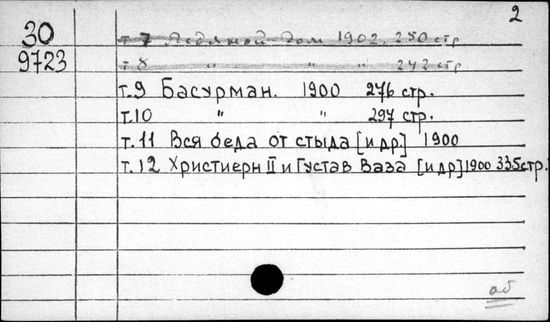 2
30
9723
т. 7 Ледяной дом 1902, 250 стр
т. 8 " " " 242 стр
т.9 Басурман. 1900 276 стр.
т.10 " " 297 стр.
т.11 Вся беда от стыда [и др.] 1900
т.12 Христиерн II и Густав Ваза [и др] 1900 335 стр.
аб